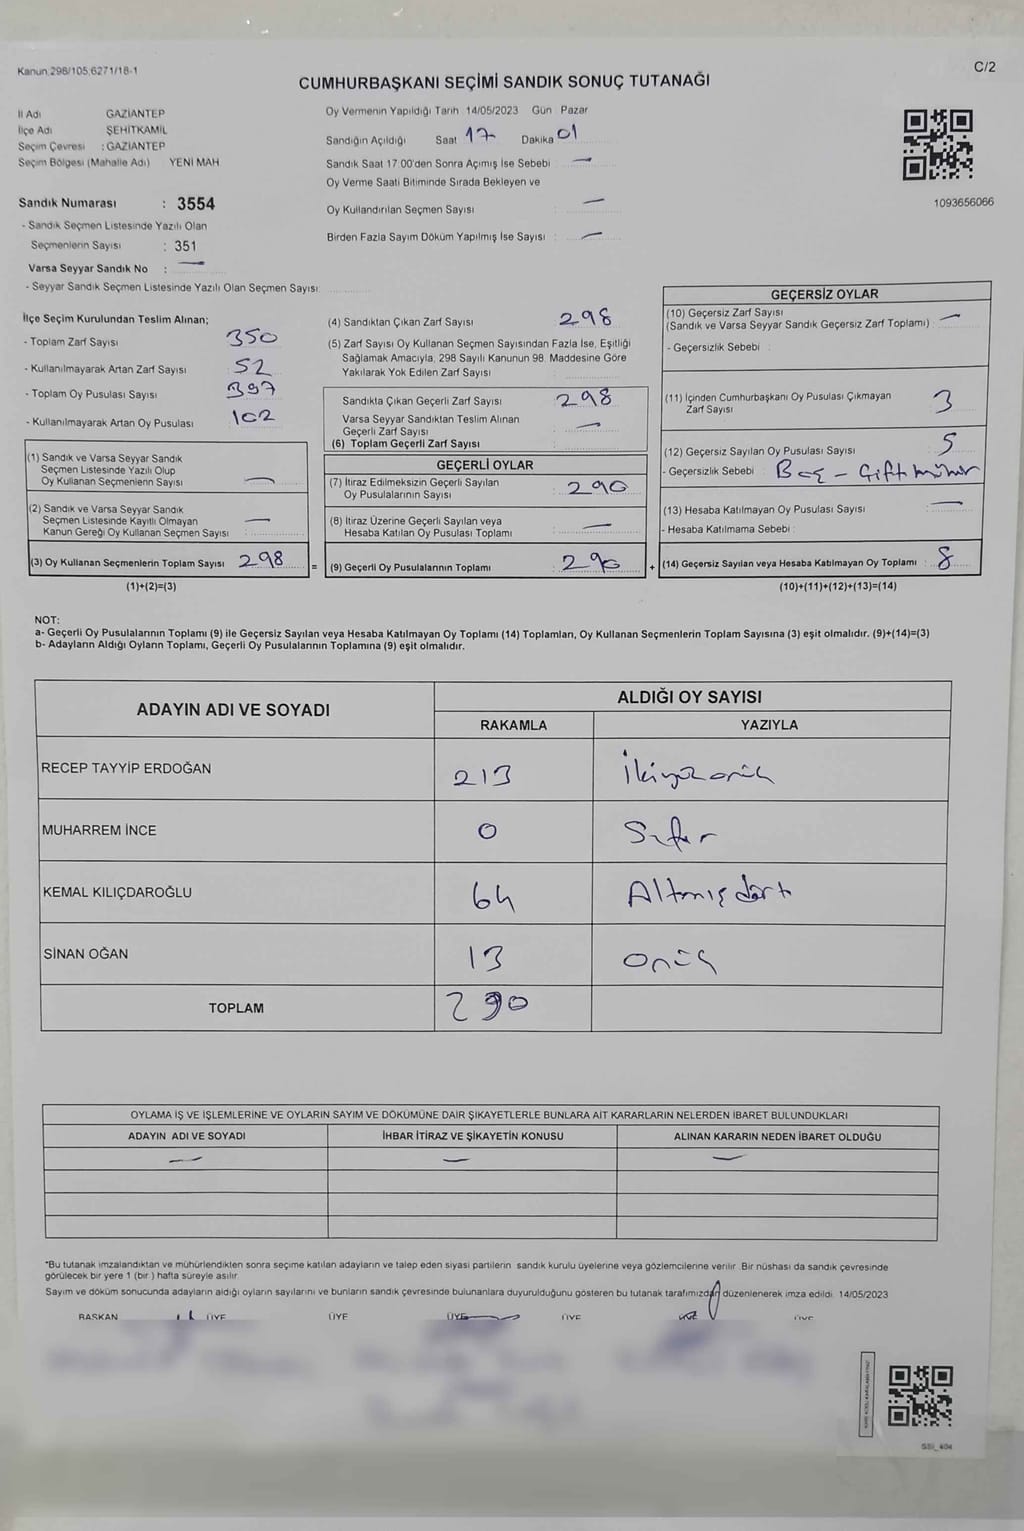 Kanun.298/105;6271/18-1
C/2
CUMHURBAŞKANI SEÇİMİ SANDIK SONUÇ TUTANAĞI
İl Adı GAZİANTEP
İlçe Adı ŞEHİTKAMİL
Seçim Çevresi : GAZİANTEP
Seçim Bölgesi (Mahalle Adı) YENİ MAH
Sandık Numarası : 3554
- Sandık Seçmen Listesinde Yazılı Olan
Seçmenlerin Sayısı : 351
Varsa Seyyar Sandık No : —
- Seyyar Sandık Seçmen Listesinde Yazılı Olan Seçmen Sayısı:
Oy Vermenin Yapıldığı Tarih 14/05/2023 Gün Pazar
Sandığın Açıldığı Saat 17 Dakika 01
Sandık Saat 17:00'den Sonra Açımış İse Sebebi : —
Oy Verme Saati Bitiminde Sırada Bekleyen ve
Oy Kullandırılan Seçmen Sayısı : —
Birden Fazla Sayım Döküm Yapılmış İse Sayısı : —
1093656066
İlçe Seçim Kurulundan Teslim Alınan;
- Toplam Zarf Sayısı 350
- Kullanılmayarak Artan Zarf Sayısı 52
- Toplam Oy Pusulası Sayısı 397
- Kullanılmayarak Artan Oy Pusulası 102
(1) Sandık ve Varsa Seyyar Sandık
Seçmen Listesinde Yazılı Olup
Oy Kullanan Seçmenlerin Sayısı : —
(2) Sandık ve Varsa Seyyar Sandık
Seçmen Listesinde Kayıtlı Olmayan
Kanun Gereği Oy Kullanan Seçmen Sayısı : —
(3) Oy Kullanan Seçmenlerin Toplam Sayısı 298
(1)+(2)=(3)
(4) Sandıktan Çıkan Zarf Sayısı 298
(5) Zarf Sayısı Oy Kullanan Seçmen Sayısından Fazla İse, Eşitliği
Sağlamak Amacıyla, 298 Sayılı Kanunun 98. Maddesine Göre
Yakılarak Yok Edilen Zarf Sayısı
Sandıkta Çıkan Geçerli Zarf Sayısı 298
Varsa Seyyar Sandıktan Teslim Alınan
Geçerli Zarf Sayısı : —
(6) Toplam Geçerli Zarf Sayısı :
GEÇERLİ OYLAR
(7) İtiraz Edilmeksizin Geçerli Sayılan
Oy Pusulalarının Sayısı : 290
(8) İtiraz Üzerine Geçerli Sayılan veya
Hesaba Katılan Oy Pusulası Toplamı : —
= (9) Geçerli Oy Pusulalarının Toplamı : 290 +
GEÇERSİZ OYLAR
(10) Geçersiz Zarf Sayısı
(Sandık ve Varsa Seyyar Sandık Geçersiz Zarf Toplamı) : —
- Geçersizlik Sebebi :
(11) İçinden Cumhurbaşkanı Oy Pusulası Çıkmayan
Zarf Sayısı 3
(12) Geçersiz Sayılan Oy Pusulası Sayısı : 5
- Geçersizlik Sebebi : Boş - Çift mühür
(13) Hesaba Katılmayan Oy Pusulası Sayısı : —
- Hesaba Katılmama Sebebi :
(14) Geçersiz Sayılan veya Hesaba Katılmayan Oy Toplamı : 8
(10)+(11)+(12)+(13)=(14)
NOT:
a- Geçerli Oy Pusulalarının Toplamı (9) ile Geçersiz Sayılan veya Hesaba Katılmayan Oy Toplamı (14) Toplamları, Oy Kullanan Seçmenlerin Toplam Sayısına (3) eşit olmalıdır. (9)+(14)=(3)
b- Adayların Aldığı Oyların Toplamı, Geçerli Oy Pusulalarının Toplamına (9) eşit olmalıdır.
ADAYIN ADI VE SOYADI ALDIĞI OY SAYISI
RAKAMLA YAZIYLA
RECEP TAYYİP ERDOĞAN 213 İkiyüzonüç
MUHARREM İNCE 0 Sıfır
KEMAL KILIÇDAROĞLU 64 Altmışdört
SİNAN OĞAN 13 Onüç
TOPLAM 290
OYLAMA İŞ VE İŞLEMLERİNE VE OYLARIN SAYIM VE DÖKÜMÜNE DAİR ŞİKAYETLERLE BUNLARA AİT KARARLARIN NELERDEN İBARET BULUNDUKLARI
ADAYIN ADI VE SOYADI İHBAR İTİRAZ VE ŞİKAYETİN KONUSU ALINAN KARARIN NEDEN İBARET OLDUĞU
— — —
*Bu tutanak imzalandıktan ve mühürlendikten sonra seçime katılan adayların ve talep eden siyasi partilerin sandık kurulu üyelerine veya gözlemcilerine verilir. Bir nüshası da sandık çevresinde
görülecek bir yere 1 (bir ) hafta süreyle asılır.
Sayım ve döküm sonucunda adayların aldığı oyların sayılarını ve bunların sandık çevresinde bulunanlara duyurulduğunu gösteren bu tutanak tarafımızdan düzenlenerek imza edildi. 14/05/2023
BAŞKAN ÜYE ÜYE ÜYE ÜYE ÜYE
SSI_404